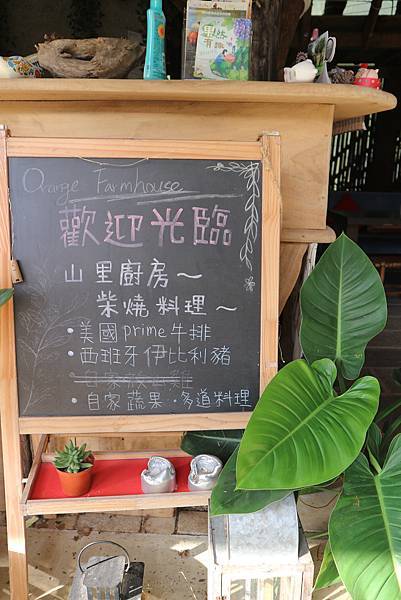 果然
有趣
Orange Farmhouse
歡迎光臨
山里廚房~
柴燒料理~
·美國prime牛排
·西班牙伊比利豬
·自家放山雞
·自家蔬果·多道料理